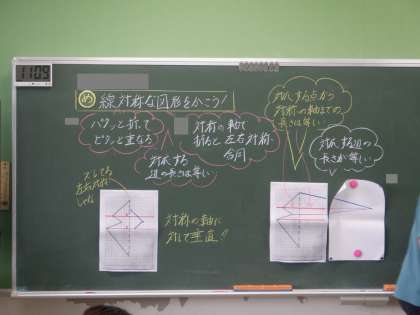 11:09
め 線対称な図形をかこう!
パタッと折って
ピタッと重なる
対称の軸で
折ると左右対称、
合同
対応する
辺の長さは等しい
対応する点から
対称の軸までの
長さは等しい
対応する辺の
長さが等しい
対称の軸に
対して垂直!!